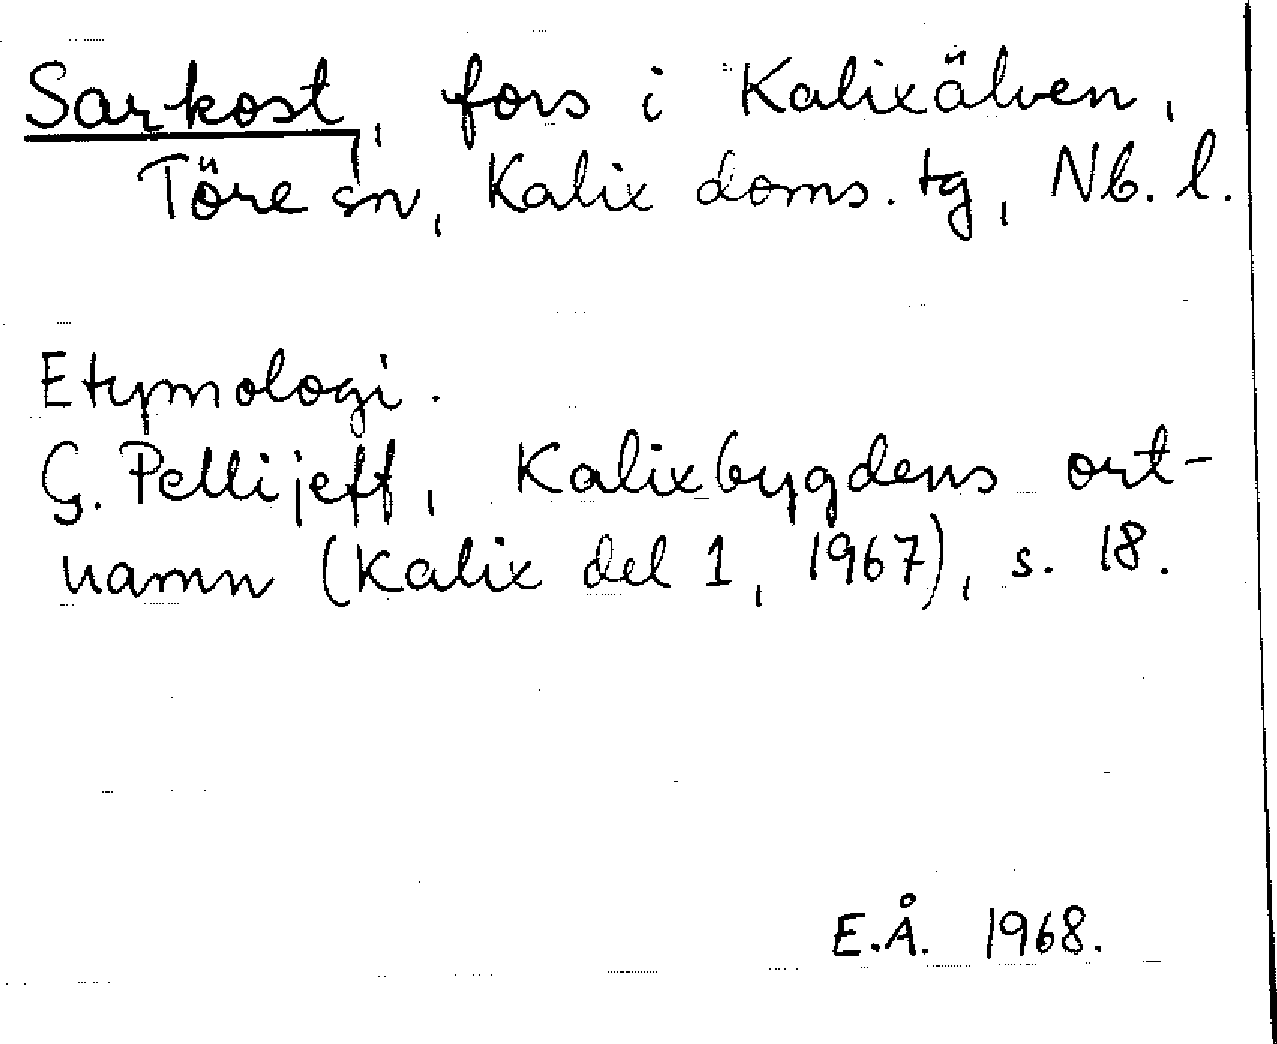 Sarkost, fors i Kalixälven,
Töre sn, Kalix doms. tg, Nb. l.
Etymologi.
G. Pellijeff, Kalixbygdens ort-
namn (Kalix del 1, 1967), s. 18.
E.Å. 1968.